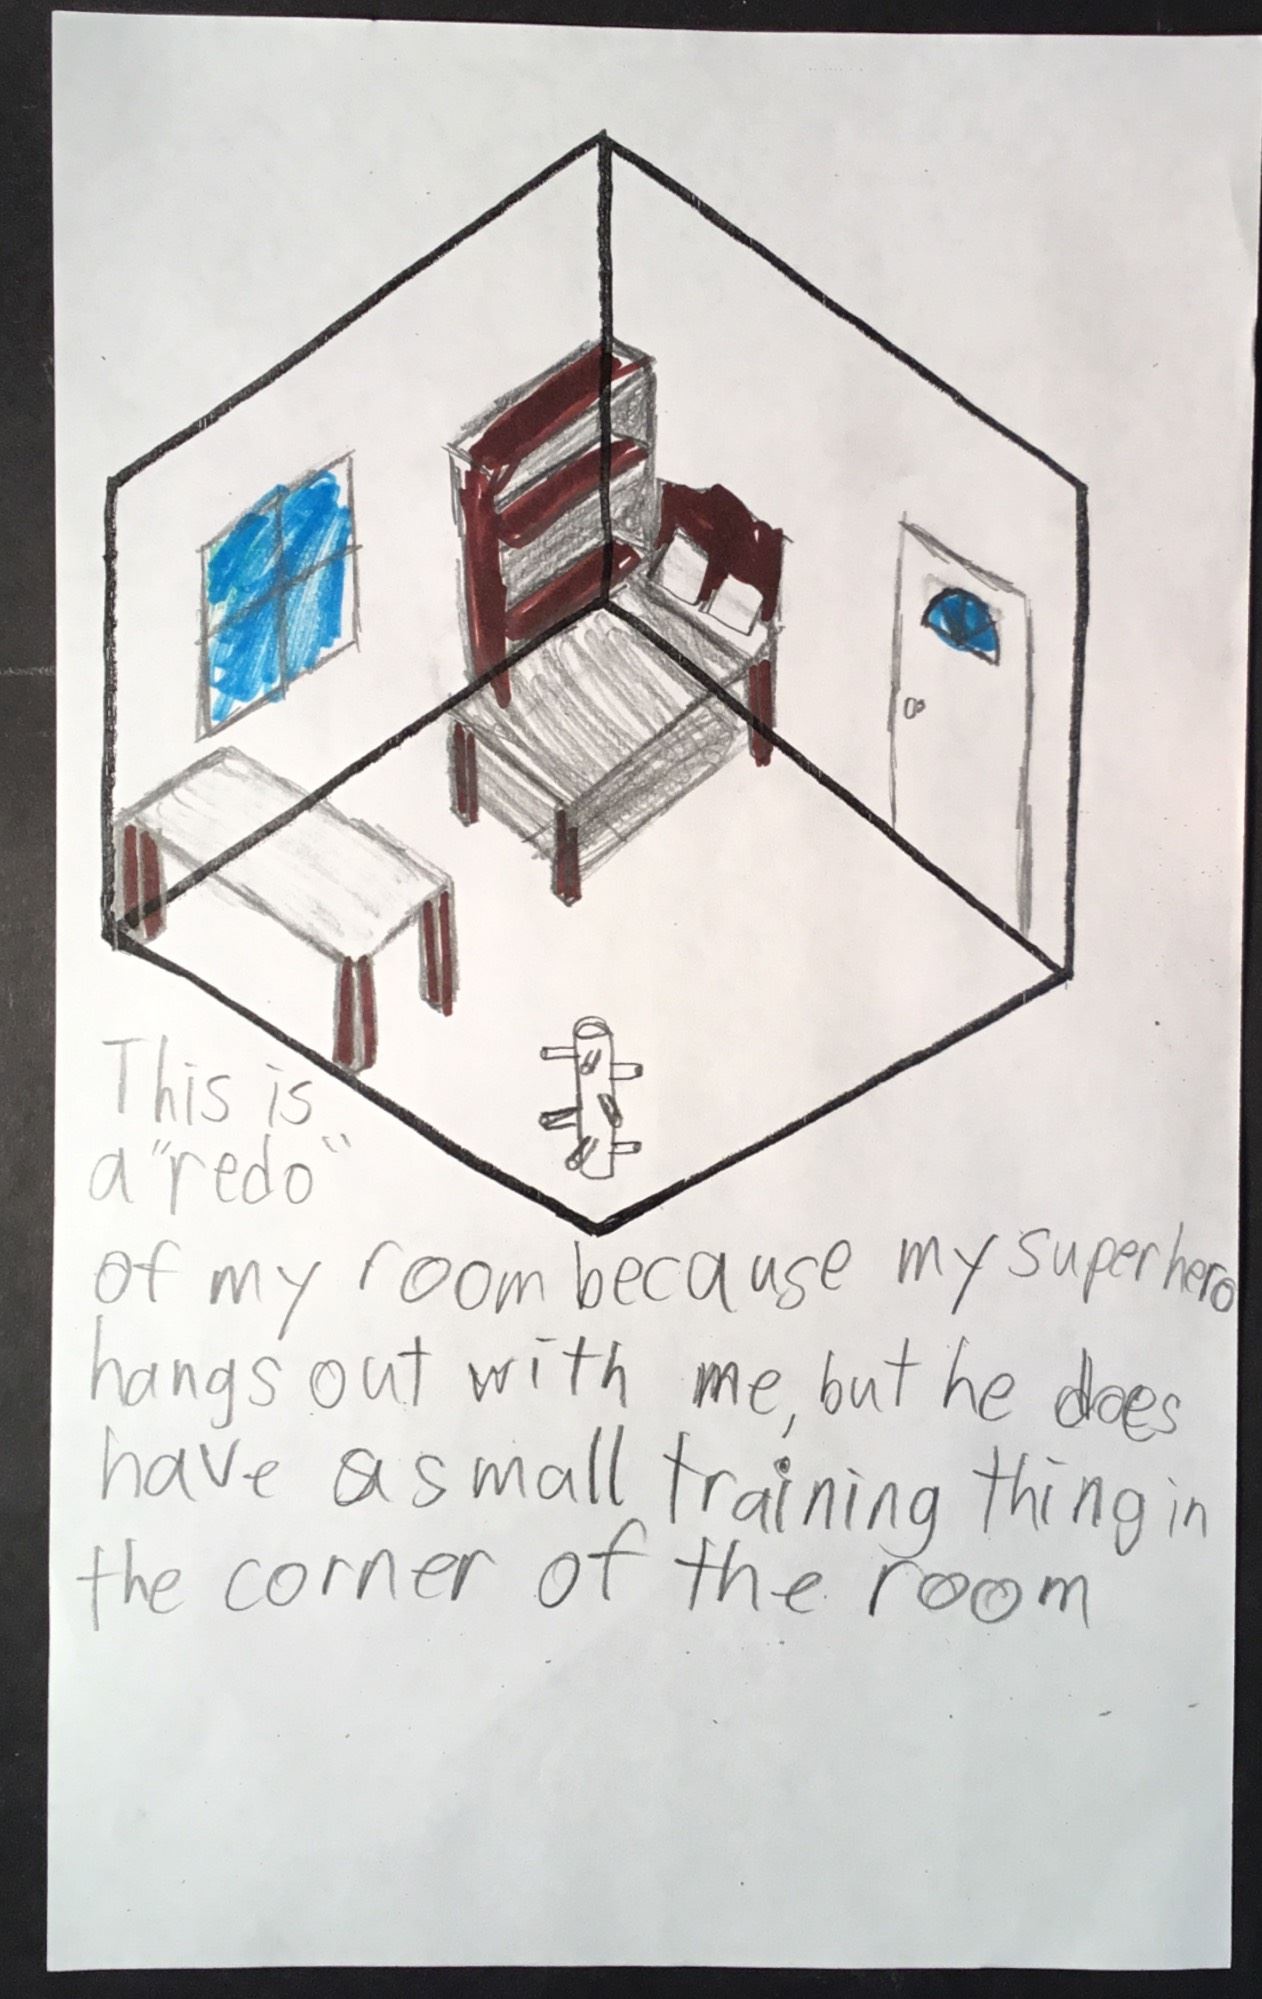 This is
a "redo"
of my room because my superhero
hangs out with me, but he does
have a small training thing in
the corner of the room